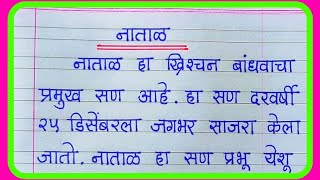 नाताळ
नाताळ हा ख्रिश्चन बांधवाचा
प्रमुख सण आहे. हा सण दरवर्षी
२५ डिसेंबरला जगभर साजरा केला
जातो. नाताळ हा सण प्रभू येशू